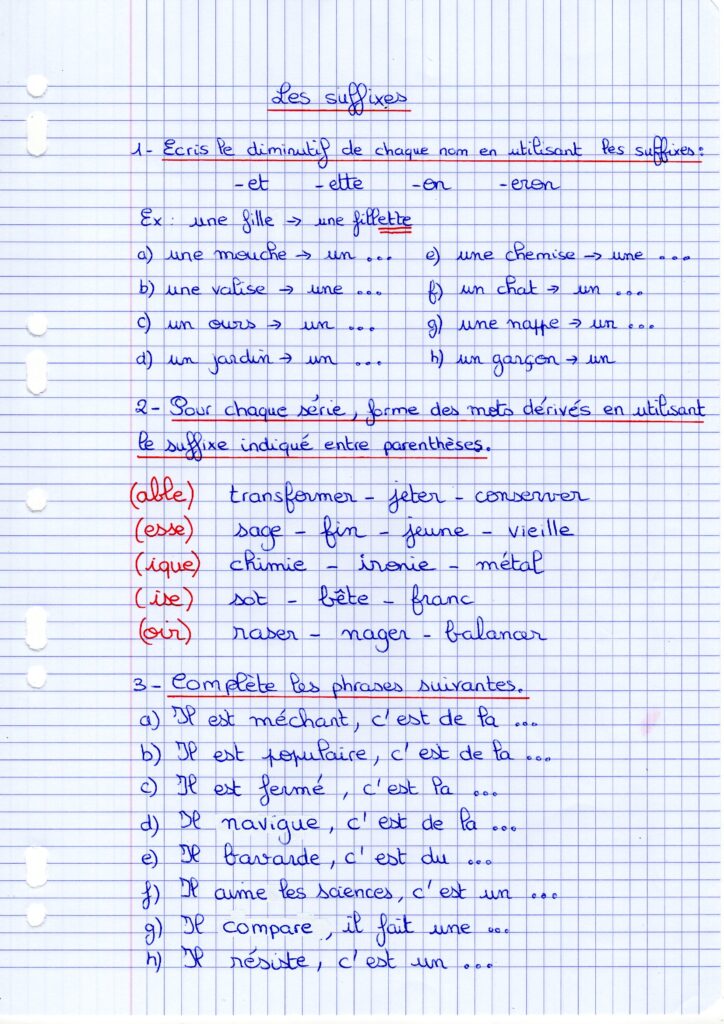 Les suffixes
1- Ecris le diminutif de chaque nom en utilisant les suffixes:
-et -ette -on -eron
Ex: une fille → une fillette
a) une mouche → un ... e) une chemise → une ...
b) une valise → une ... f) un chat → un ...
c) un ours → un ... g) une nappe → un ...
d) un jardin → un ... h) un garçon → un
2- Pour chaque série, forme des mots dérivés en utilisant
le suffixe indiqué entre parenthèses.
(able) transformer - jeter - conserver
(esse) sage - fin - jeune - vieille
(ique) chimie - ironie - métal
(ise) sot - bête - franc
(oir) raser - nager - balancer
3- Complète les phrases suivantes.
a) Il est méchant, c'est de la ...
b) Il est populaire, c'est de la ...
c) Il est fermé, c'est la ...
d) Il navigue, c'est de la ...
e) Il bavarde, c'est du ...
f) Il aime les sciences, c'est un ...
g) Il compare, il fait une ...
h) Il résiste, c'est un ...